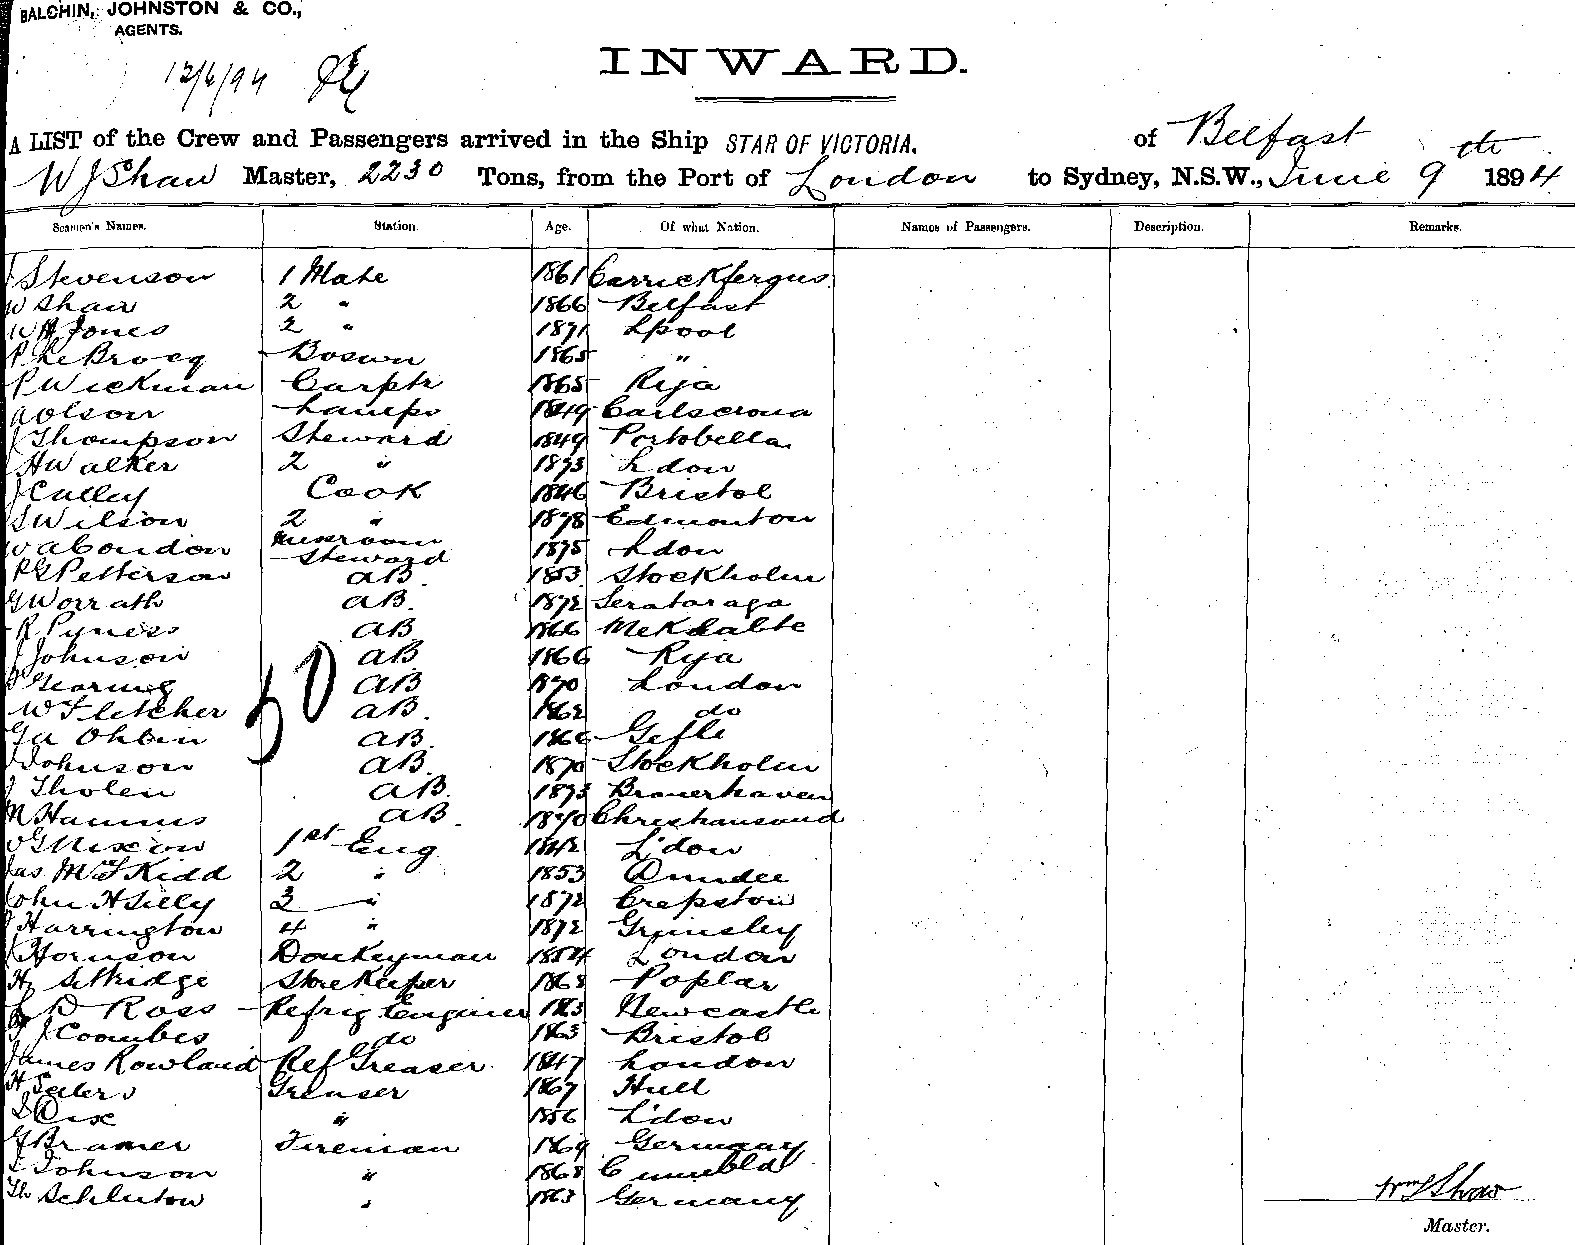 BALCHIN, JOHNSTON & CO.,
AGENTS.
12/6/94
INWARD.
A LIST of the Crew and Passengers arrived in the Ship STAR OF VICTORIA. of Belfast
W J Shaw Master, 2230 Tons, from the Port of London to Sydney, N.S.W., June 9th 1894
Seamen's Names. Station. Age. Of what Nation. Names of Passengers. Description. Remarks.
J Stevenson 1 Mate 1861 Carrickfergus
W Shaw 2 " 1866 Belfast
W H Jones 2 " 1871 Lpool
P Le Brocq Boswn 1865 "
P Wickman Carptr 1865 Rija
A Olson Lamps 1849 Carlscrona
J Thompson Steward 1849 Portobella
H Walker 2 " 1873 Ldon
J Culley Cook 1846 Bristol
S Wilson 2 " 1878 Edmonton
W A Condon Messroom Steward 1875 Ldon
P G Petterson AB 1853 Stockholm
G Worrath AB. 1872
R Pyness AB 1866
J Johnson AB 1866 Rija
Gearing AB 1870 London
W Fletcher AB. 1862 do
G A Ohlin AB. 1866 Gefle
J Johnson AB. 1870 Stockholm
J Tholen AB. 1873 Bremerhaven
N Hannus AB. 1870 Christiansand
Nixon 1st Eng 1842 L'don
Jas McF Kidd 2 " 1853 Dundee
John H Silly 3 " 1872 Crepston
J Harrington 4 " 1872 Grimsley
Hornson Donkeyman 1854 London
Hy Selkidge Storekeeper 1868 Poplar
D Ross Refrig Enginer 1863 Newcastle
J Coombes do 1863 Bristol
James Rowland Ref Greaser. 1847 London
H Greaser 1867 Hull
Dix " 1856 L'don
G Bramer Fireman 1869 Germany
Johnson " 1868
Th Schluton " 1863 Germany
Wm J Shaw
Master.